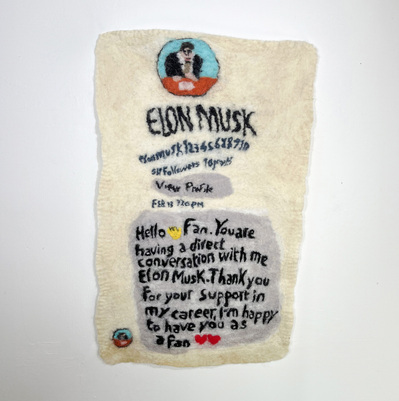 ELON MUSK
elonmusk12345678910
Followers
View Profile
Feb 13 7:20 pm
Hello 💛 Fan. You are
having a direct
conversation with me
Elon Musk. Thank you
for your support in
my career, I'm happy
to have you as
a fan ❤️❤️